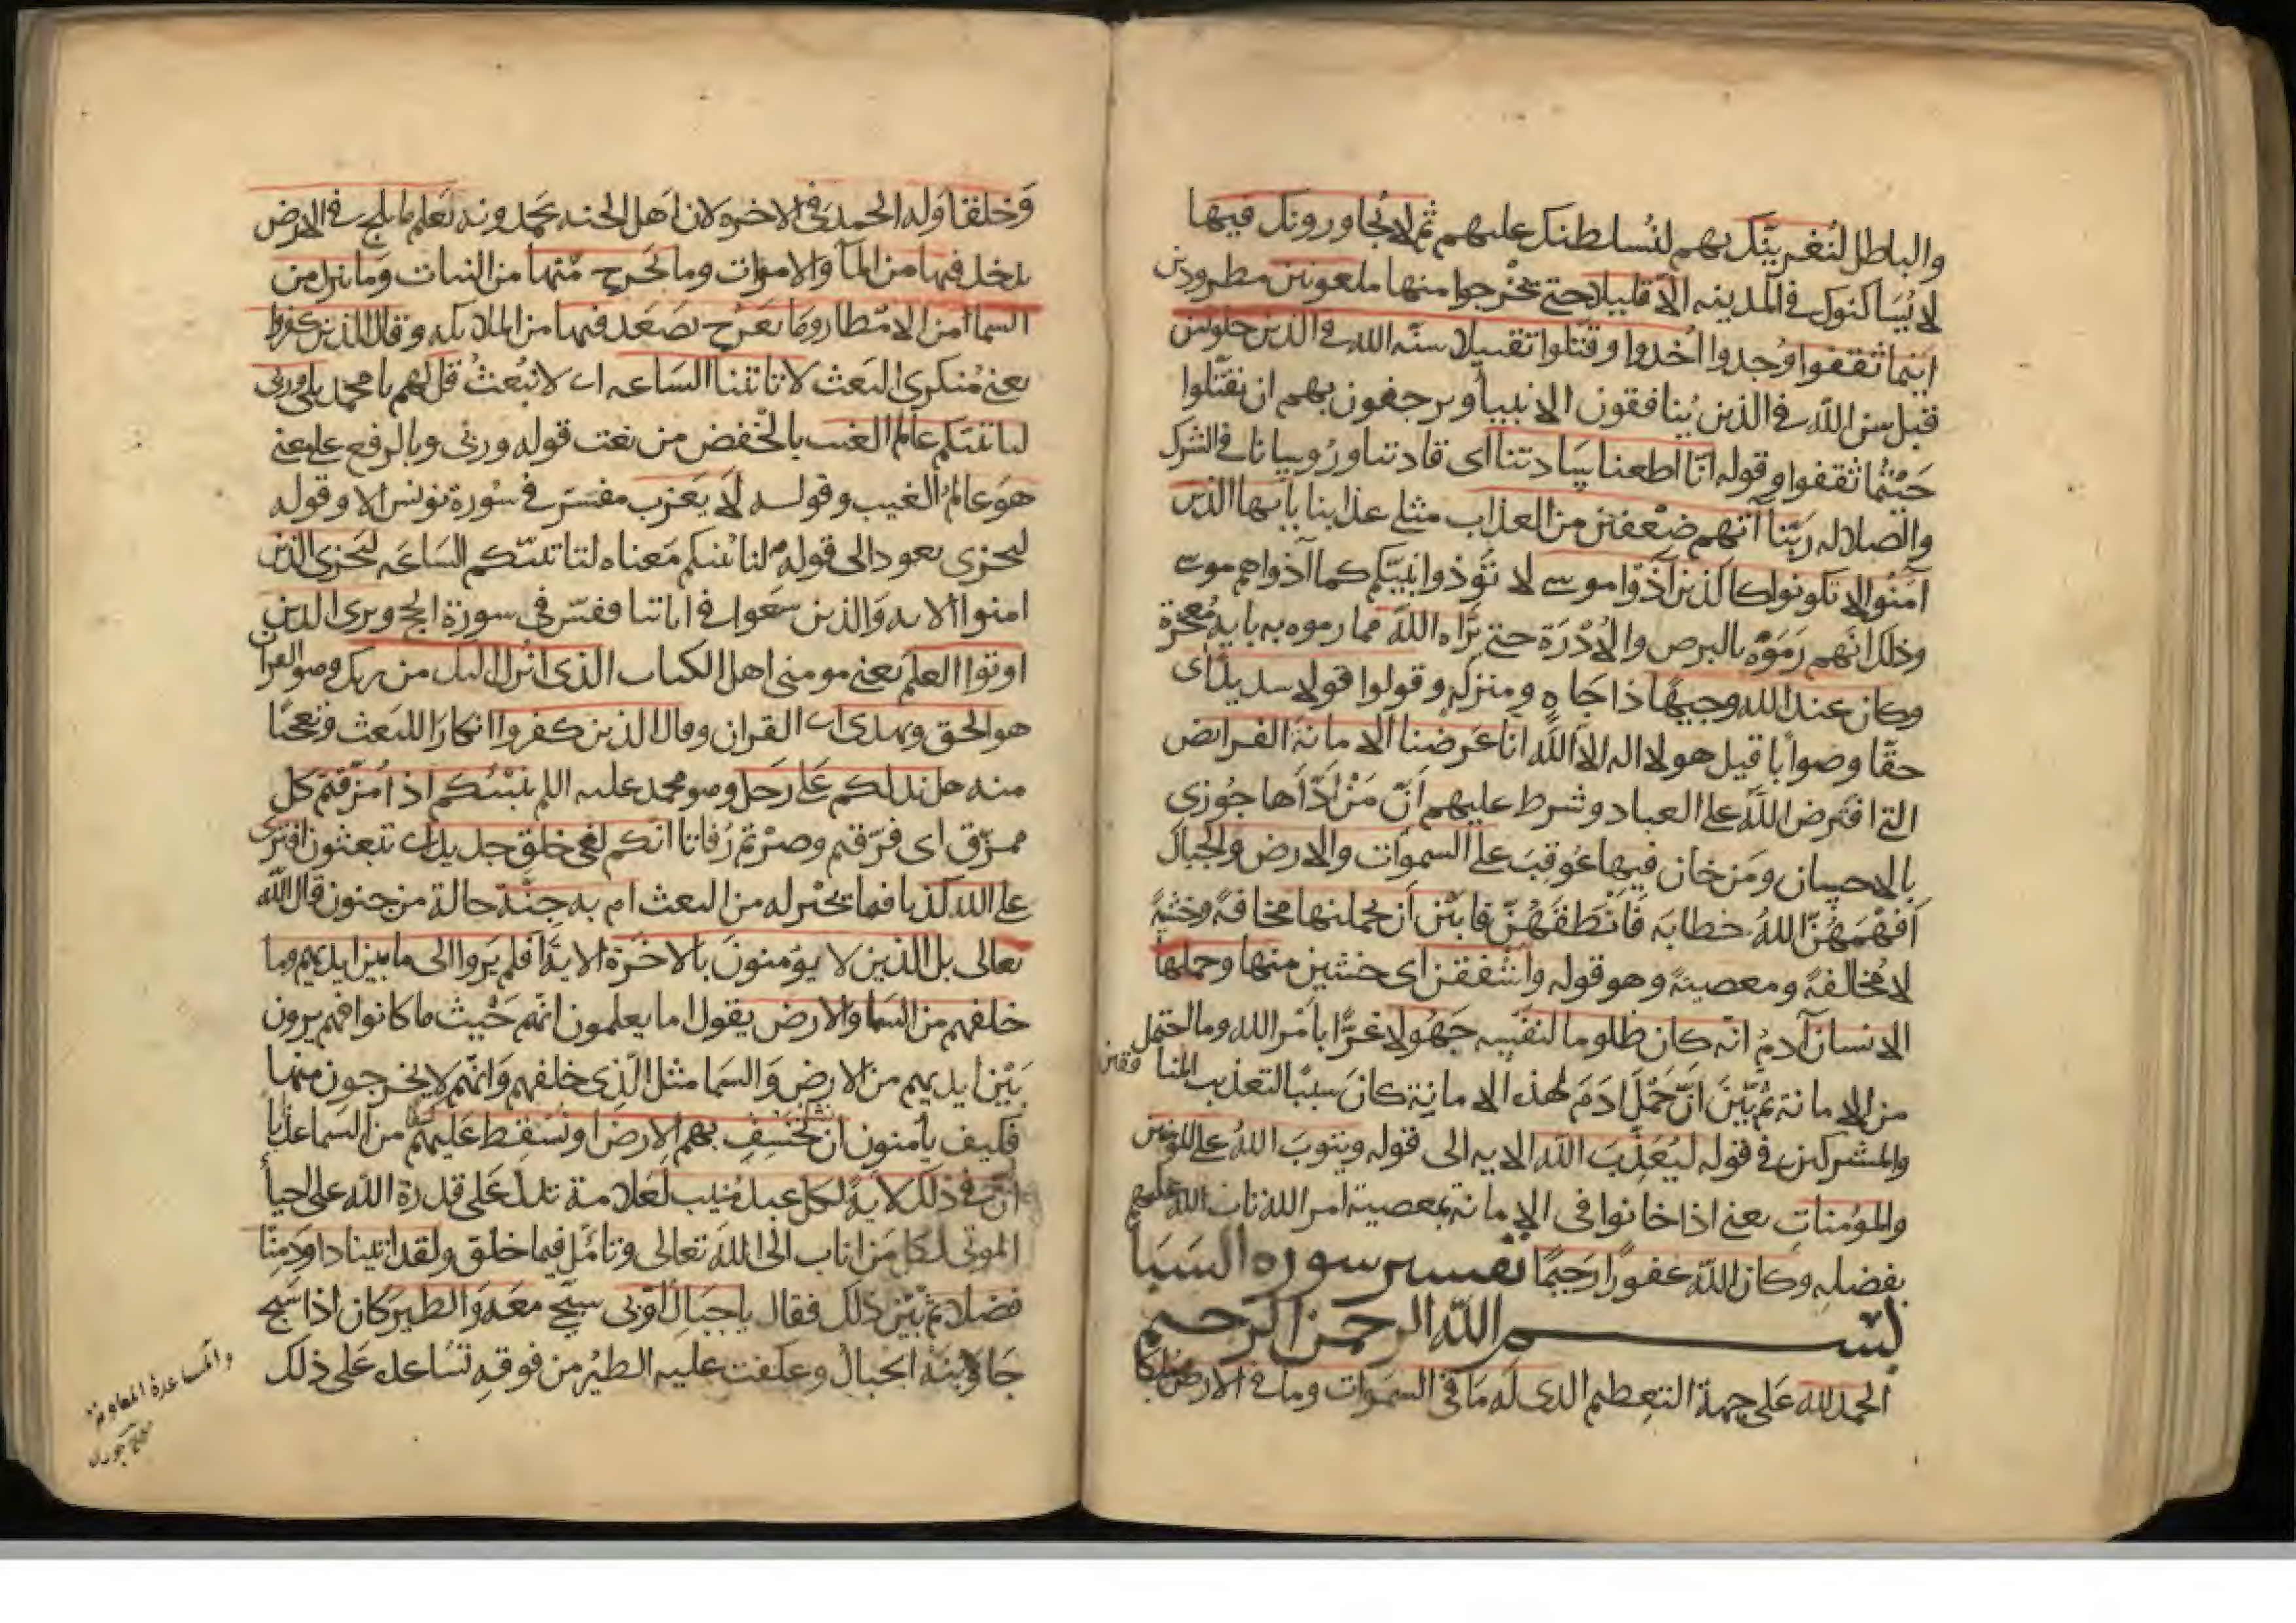 والباطل لنُغرينّك بهم لنُسلطنك عليهم ثم لا يُجاورونك فيها
لا يُسَاكنوك في المدينه الّا قليلا حتى يخْرجوا منها ملعونين مطرودين
اينما ثقفوا وُجدوا اُخذوا وقتّلوا تقتيلا سنّه الله في الذين خلوا من
قبل سن الله في الذين يُنافقون الانبيأ ويرجفون بهم ان يقتّلوا
حَيْثما ثقفوا وقوله انّا اطعنا سَادتنا اى قادتنا ورُوسانا في الشرك
والضلاله ربّنا آتهم ضعْفين من العذاب مثلي عذابنا يا ايها الذين
آمَنُوا لا تكونوا كالذين آذوْا موسى لا تؤذوا نبيّكم كما آذوا هم موسى
وذلك انّهم رَمَوْه بالبرص والاُدْرَة حتى بَرَّاه الله مما رموه به بايه مُعجزة
وكان عند الله وجيهًا ذا جَاهٍ ومنزله وقولوا قولا سديدًا اى
حقّا وصوابًا قيل هو لا اله الا الله انا عَرضنا الامانة الفرايض
التي افترض الله على العباد وشرط عليهم اَنّ مَنْ اَدّاَها جُوزى
بالاحسان ومَن خان فيها عُوقِبَ على السموات والارض والجبال
اَفْهَمَهُنَّ اللهُ خطابَه فاَنْطقَهُنّ فابَيْن اَن يحملنها مخافةً وخشيةً
لا مُخالفةً ومعصيةً وهو قوله واشفقن اى خشين منها وحملها
الانسان آدمُ انّه كان ظلوما لنفسِه جَهُولا غرًّا بامْر الله وما احتمل
من الامانة ثم بَيّنَ اَنّ حَمْلَ ادَمَ لهذه الامانة كانَ سببًا لتعذيب المنافقين
والمشركين في قوله ليُعَذِّبَ الله الايه الى قوله ويتوبَ اللهُ على المؤمنين
والمؤمناتِ يعني اذا خانوا في الامانة بمعصية امر الله تاب الله عليهم
بفضله وكان الله غفورًا رَحيمًا تفسير سوره السَبَأ
بسم الله الرحمن الرحيم
الحمد لله على جهة التعظيم الذى له مَا في السموات وما في الارض مُلكا
وَخلقا وَله الحمد في الاخره لان اهل الجنه يحمدونه يَعلم ما يلج في الارض
يدخل فيها من المآ والاموات وما يخرج منها من النبات وَما ينزل من
السما من الامْطار وما يَعرُج يصَعَد فيها من الملائكه وقال الذين كفروا
يعني مُنكرى البَعث لا تاتينا السَاعه اى لا نُبعَثُ قل لهم يا محمد بلى وربي
لتاتينّكم عالم الغيب بالخفض من نعت قوله وربي وبالرفع على معنى
هوَ عالمُ الغيب وقولـه لا يَعزب مفسّر في سُورة يونس الا وقوله
ليجزى يعود الى قوله لتاتينّكم مَعناه لتاتينّكم السَاعَه ليَجزى الذين
امنوا الايه وَالذين سَعَوا في اياتنا مفسّر في سورة الحج ويرى الذين
اوتوا العلم يَعني مومني اهل الكتاب الذى انزل اليك من ربك وهو القرآن
هو الحق ويهدى اى القران وقال الذين كفروا انكارًا للبَعث وتعجبًا
منه هل ندلكم عَلى رَجل وهو محمد عليه السلم ينبّئكم اذا مُزّقتم كل
ممزّق اى فرّقتم وصرْتم رُفاتا انّكم لفي خلق جديد اى تبعثون افترى
على الله كذبا فيما يخبر به من البعث ام به جنّة حالة من جنون قال الله
تعالى بل الذين لا يؤمنون بالاخَرة الاية اَفلم يَروا الى ما بين ايديهم وما
خلفهم من السَما والارض يقول اما يعلمون انّهم حَيْث ما كانوا فهم يرون
بَيْن ايديهم من الارض وَالسَما مثل الّذي خلفهم وَانّهم لا يخرجون منها
فكيف يأمنون ان نخسفِ بهم الارض او نسقط عَليهم من السَما عذابًا
انّ في ذلك لايةً لكل عبد مُنيب لعَلامة تدلّ عَلى قدرة الله على احياء
الموتى لكل مَن اناب الى الله تعالى وتامّل فيما خلق ولقد اتينا داودَ مِنّا
فضلا ثم بَيّن ذلك فقال يا جبَالُ اَوّبى سبّحى معَه وَالطير كان اذا سَبّح
جَاوَبَتْه الجبال وعكفت عليه الطيْر من فوقهِ تسَاعده عَلى ذلك
والمساعدة المعاونة